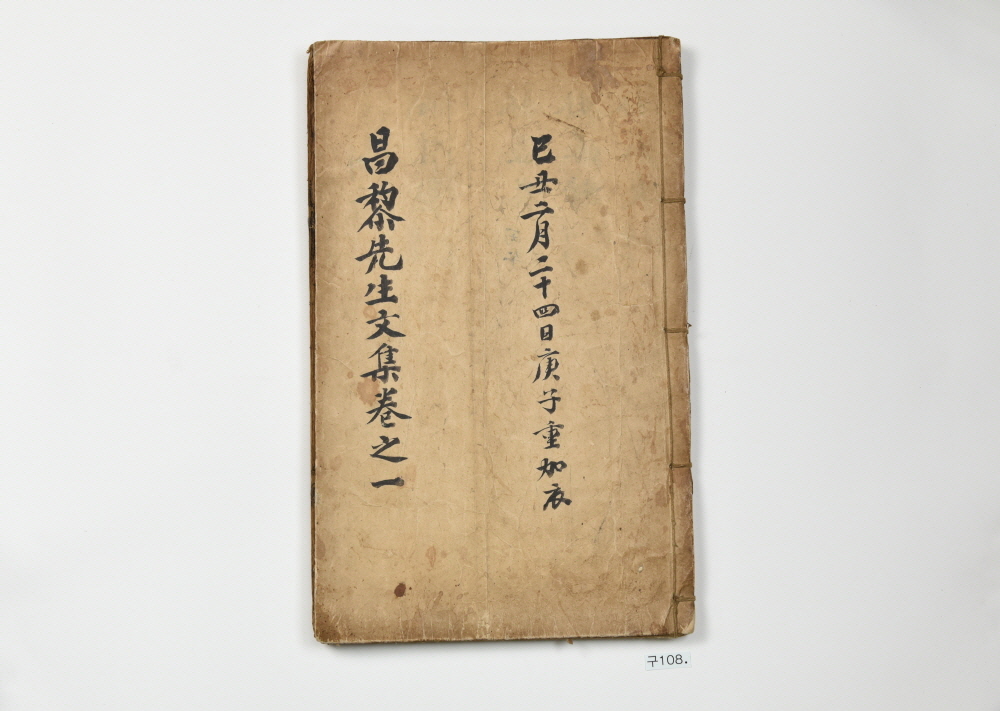 己丑二月二十四日庚子重加衣
昌黎先生文集卷之一
구108.